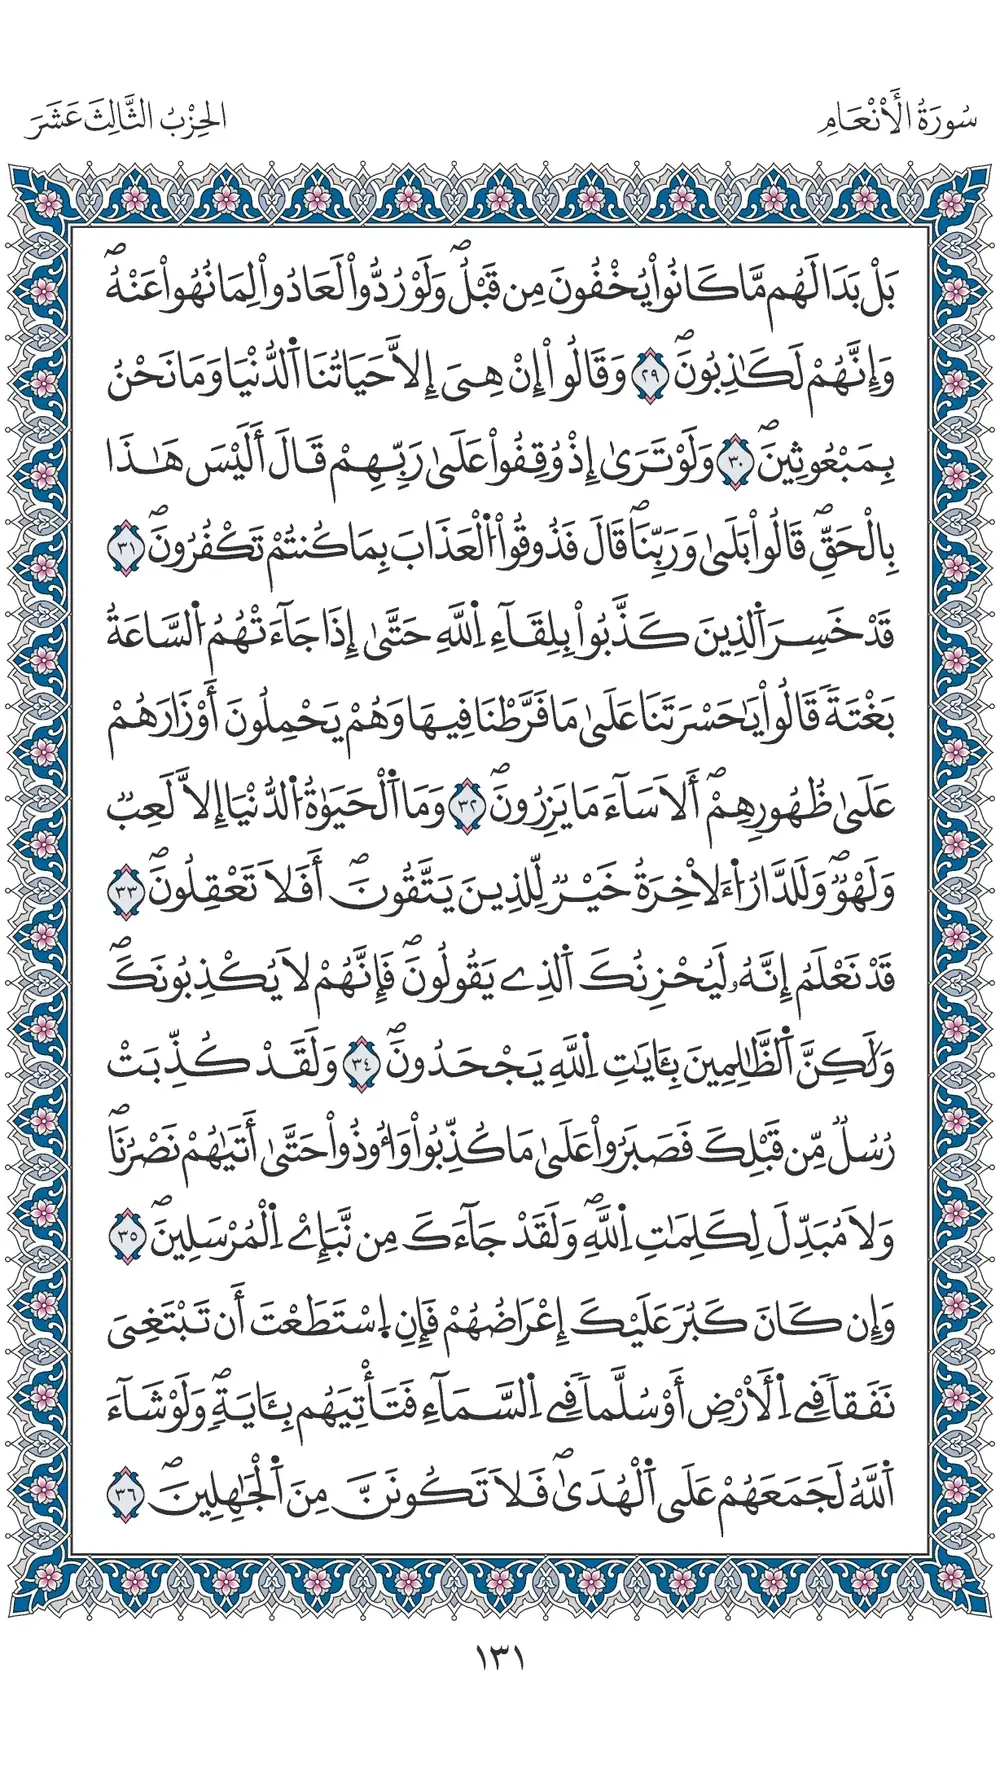 سُورَةُ الْأَنْعَامِ
الحِزْبُ الثَّالِثَ عَشَرَ
بَلْ بَدَا لَهُم مَّا كَانُواْ يُخْفُونَ مِن قَبْلُۖ وَلَوْ رُدُّواْ لَعَادُواْ لِمَا نُهُواْ عَنْهُۖ
وَإِنَّهُمْ لَكَٰذِبُونَۖ ٢٩ وَقَالُواْ إِنْ هِيَ إِلَّا حَيَاتُنَا اَ۬لدُّنْيَا وَمَا نَحْنُ
بِمَبْعُوثِينَۖ ٣٠ وَلَوْ تَرَىٰ إِذْ وُقِفُواْ عَلَىٰ رَبِّهِمْ قَالَ أَلَيْسَ هَٰذَا
بِالْحَقِّۖ قَالُواْ بَلَىٰ وَرَبِّنَاۖ قَالَ فَذُوقُواْ اُ۬لْعَذَابَ بِمَا كُنتُمْ تَكْفُرُونَۖ ٣١
قَدْ خَسِرَ اَ۬لذِينَ كَذَّبُواْ بِلِقَآءِ اِ۬للَّهِ حَتَّىٰ إِذَا جَآءَتْهُمُ اُ۬لسَّاعَةُ
بَغْتَةً قَالُواْ يَٰحَسْرَتَنَا عَلَىٰ مَا فَرَّطْنَا فِيهَا وَهُمْ يَحْمِلُونَ أَوْزَارَهُمْ
عَلَىٰ ظُهُورِهِمْۖ أَلَا سَآءَ مَا يَزِرُونَۖ ٣٢ وَمَا اَ۬لْحَيَوٰةُ اُ۬لدُّنْيَا إِلَّا لَعِبٌ
وَلَهْوٌۖ وَلَلدَّارُ اُ۬ءَلَاخِرَةُ خَيْرٌ لِّلذِينَ يَتَّقُونَۖ أَفَلَا تَعْقِلُونَۖ ٣٣
قَدْ نَعْلَمُ إِنَّهُۥ لَيُحْزِنُكَ اَ۬لذِے يَقُولُونَۖ فَإِنَّهُمْ لَا يُكْذِبُونَكَۖ
وَلَٰكِنَّ اَ۬لظَّٰلِمِينَ بِـَٔايَٰتِ اِ۬للَّهِ يَجْحَدُونَۖ ٣٤ وَلَقَدْ كُذِّبَتْ
رُسُلٌ مِّن قَبْلِكَ فَصَبَرُواْ عَلَىٰ مَا كُذِّبُواْ وَأُوذُواْ حَتَّىٰ أَتَىٰهُمْ نَصْرُنَاۖ
وَلَا مُبَدِّلَ لِكَلِمَٰتِ اِ۬للَّهِۖ وَلَقَدْ جَآءَكَ مِن نَّبَإِےْ اِ۬لْمُرْسَلِينَۖ ٣٥
وَإِن كَانَ كَبُرَ عَلَيْكَ إِعْرَاضُهُمْ فَإِنِ اِ۪سْتَطَعْتَ أَن تَبْتَغِيَ
نَفَقاً فِے اِ۬لْأَرْضِ أَوْ سُلَّماً فِے اِ۬لسَّمَآءِ فَتَأْتِيَهُم بِـَٔايَةٍۖ وَلَوْ شَآءَ
اَ۬للَّهُ لَجَمَعَهُمْ عَلَى اَ۬لْهُدَىٰۖ فَلَا تَكُونَنَّ مِنَ اَ۬لْجَٰهِلِينَۖ ٣٦
١٣١